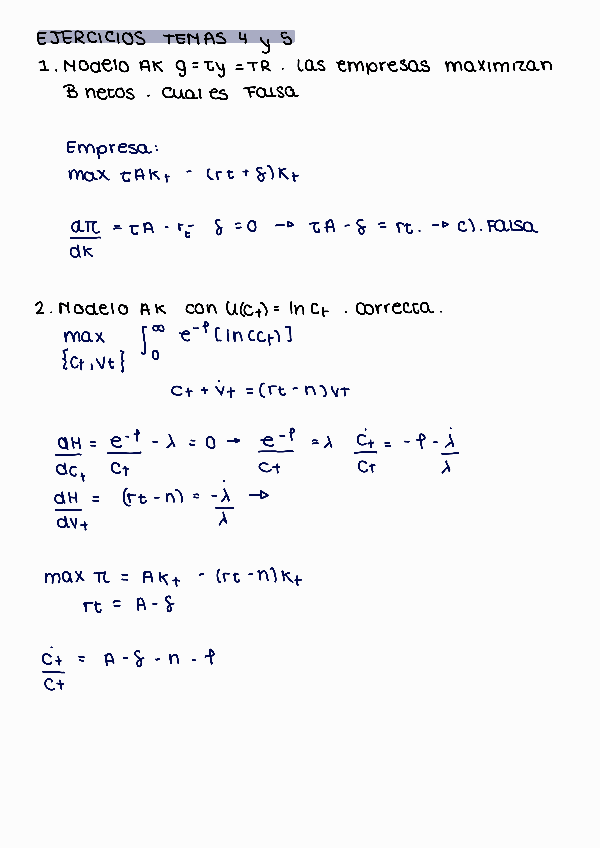 EJERCICIOS TEMAS 4 y 5
1. Modelo AK g = τy = TR. Las empresas maximizan
B netos. Cual es Falsa
Empresa:
max τAKt - (rt + δ)Kt
dπ/dK = τA - rt - δ = 0 → τA - δ = rt. → c). Falsa
2. Modelo AK con U(Ct) = ln Ct. Correcta.
max ∫₀^∞ e^-ρ [ln(Ct)]
{Ct, Vt}
Ct + V̇t = (rt - n)Vt
dH/dCt = e^-ρ/Ct - λ = 0 → e^-ρ/Ct = λ Ċt/Ct = -ρ - λ̇/λ
dH/dVt = (rt - n) = -λ̇/λ →
max π = AKt - (rt - n)Kt
rt = A - δ
Ċt/Ct = A - δ - n - ρ